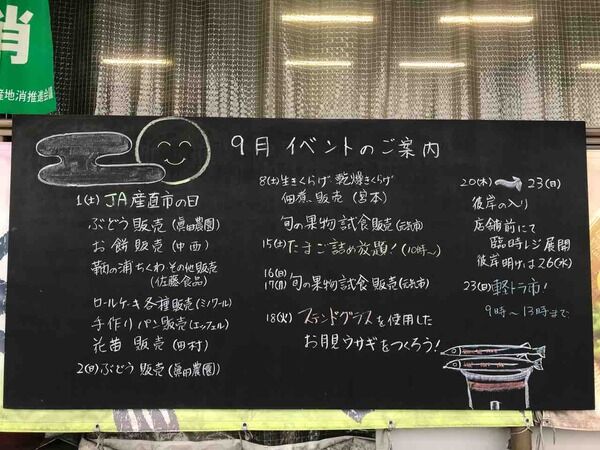 消
産地消推進会議
9月 イベントのご案内
1(土) JA産直市の日
ぶどう販売(眞田農園)
お餅販売(中西)
鞆の浦ちくわその他販売
(佐藤食品)
ロールケーキ各種販売(ミノワール)
手作りパン販売(エッフェル)
花苗 販売(田村)
2(日)ぶどう販売(眞田農園)
8(土)生きくらげ 乾燥きくらげ
佃煮 販売(宮本)
旬の果物試食販売(元気市)
15(土)たまご詰め放題!(10時~)
16(日)
17(月)旬の果物試食販売(元気市)
18(火)ステンドグラスを使用した
お月見ウサギをつくろう!
20(木)→23(日)
彼岸の入り
店舗前にて
臨時レジ展開
彼岸明けは26(水)
23(日)軽トラ市!
9時~13時まで